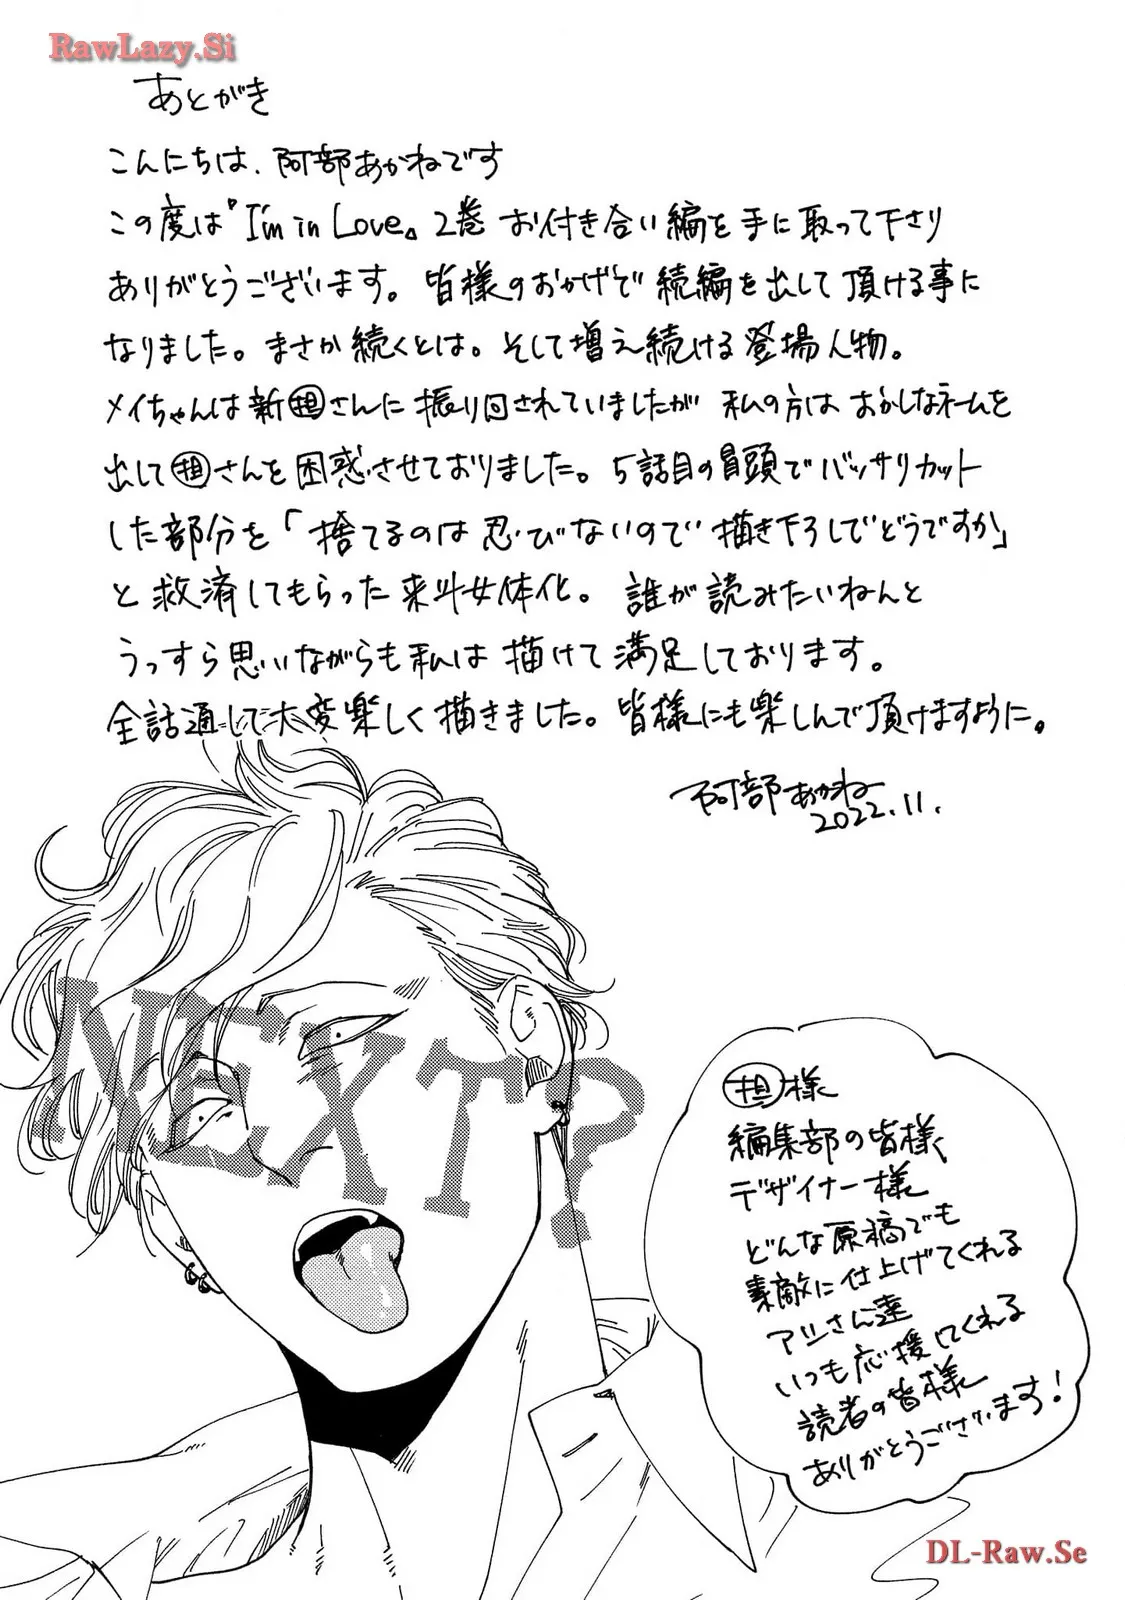 RawLazy.Si
あとがき
こんにちは、阿部あかねです
この度は『I'm in Love』2巻 お付き合い編を手に取って下さり
ありがとうございます。皆様のおかげで続編を出して頂ける事に
なりました。まさか続くとは。そして増え続ける登場人物。
メイちゃんは新担さんに振り回されていましたが 私の方はおかしなネームを
出して担さんを困惑させておりました。5話目の冒頭でバッサリカット
した部分を「捨てるのは忍びないので描き下ろしでどうですか」
と救済してもらった来斗女体化。誰が読みたいねんと
うっすら思いながらも私は描けて満足しております。
全話通して大変楽しく描きました。皆様にも楽しんで頂けますように。
阿部あかね
2022.11.
NEXT?
担様
編集部の皆様
デザイナー様
どんな原稿でも
素敵に仕上げてくれる
アシさん達
いつも応援してくれる
読者の皆様
ありがとうございます!
DL-Raw.Se